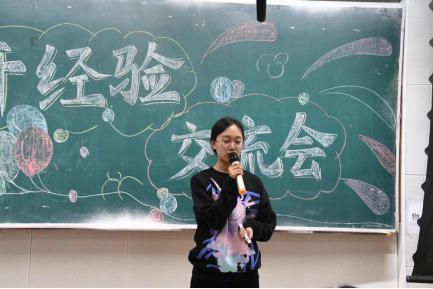 经验
交流会
物